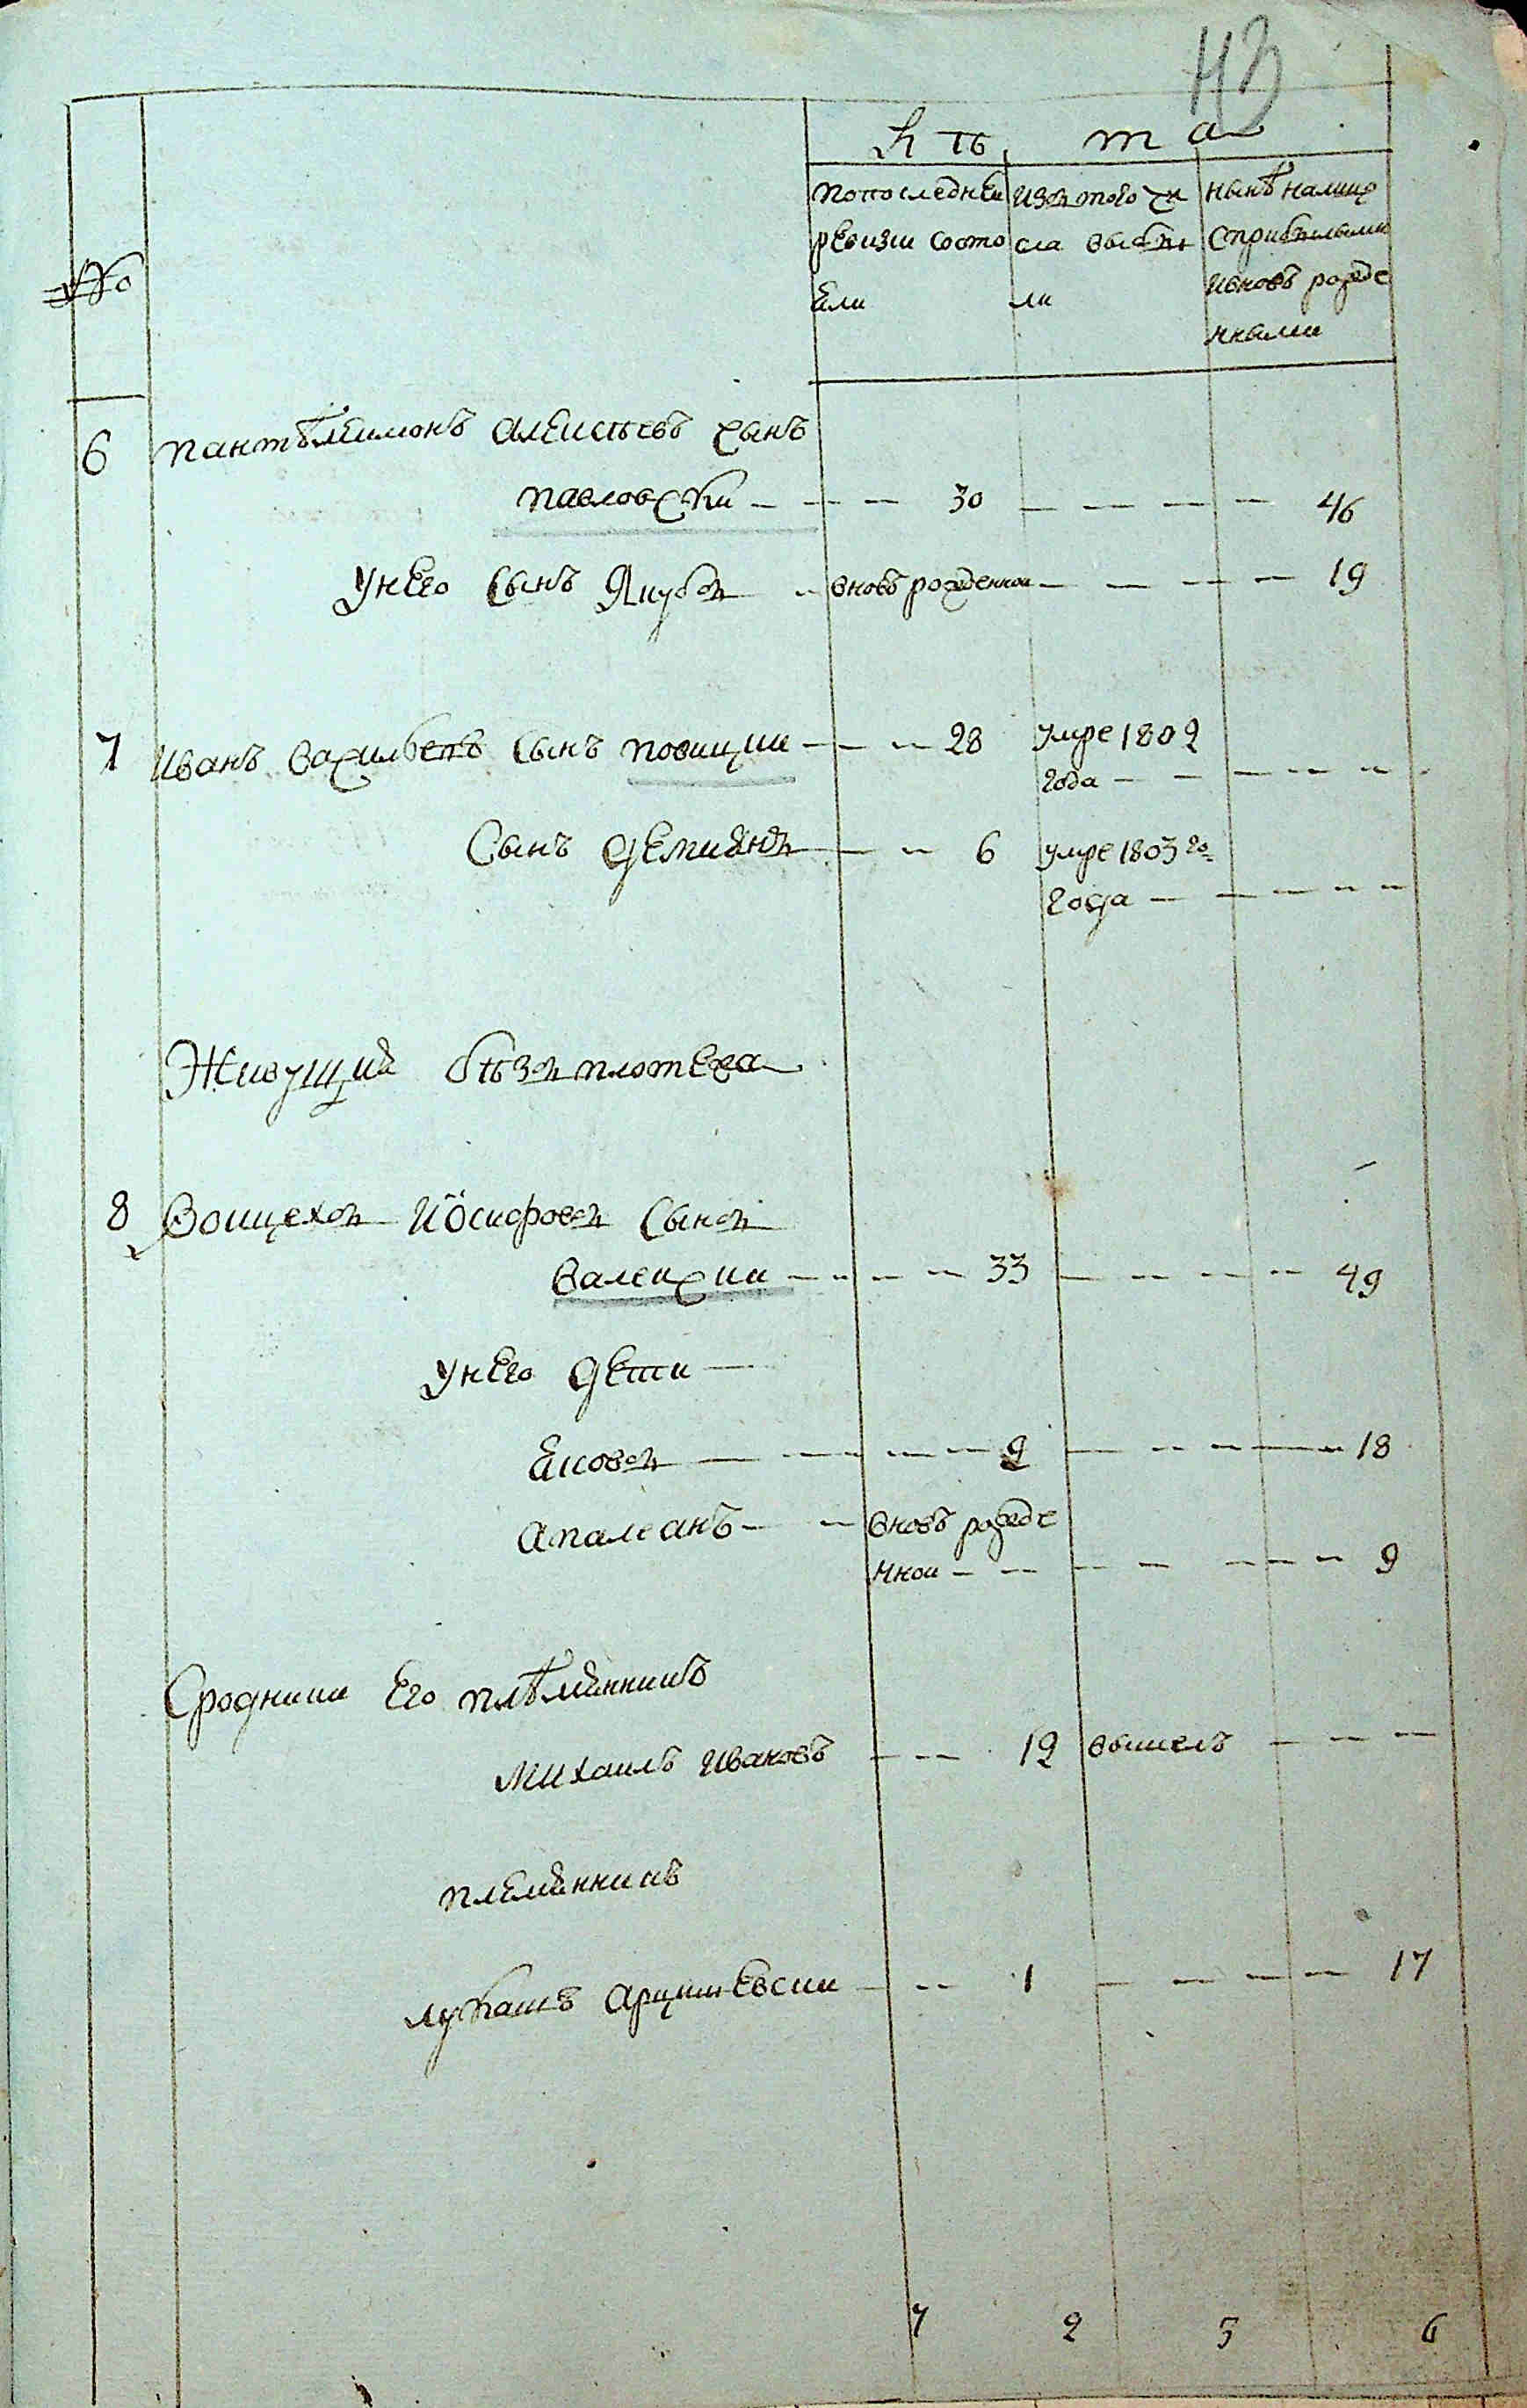 43
Лѣта
№
попоследней ревизи состояли
изътого числа выбыли
нынѣ налицо сприбылыми ивновь рожденными
6 пантѣлеимонъ Алексѣевъ сынъ
павловски — — — 30 — — — — 46
Унего сынъ Якубъ — вновь рожденнои — — — — 19
7 Иванъ Васильевъ сынъ новицки — — — 28 умре 1802
года — — — — — —
Сынъ Демиянъ — — 6 умре 1803 го
года — — — — —
Живущий
8 Воицехъ Иосифовъ Сынъ
валенски — — — — 33 — — — — 49
Унего Дети —
Яковъ — — — — 2 — — — — 18
Апалеанъ — — вновь рожде
ннои — — — — — — — 9
Сродники Его плѣмянникъ
Михаилъ Ивановъ — — 12 вышелъ — — —
племянникъ
лукашъ Арцишевски — — 1 — — — — 17
7 2 5 6